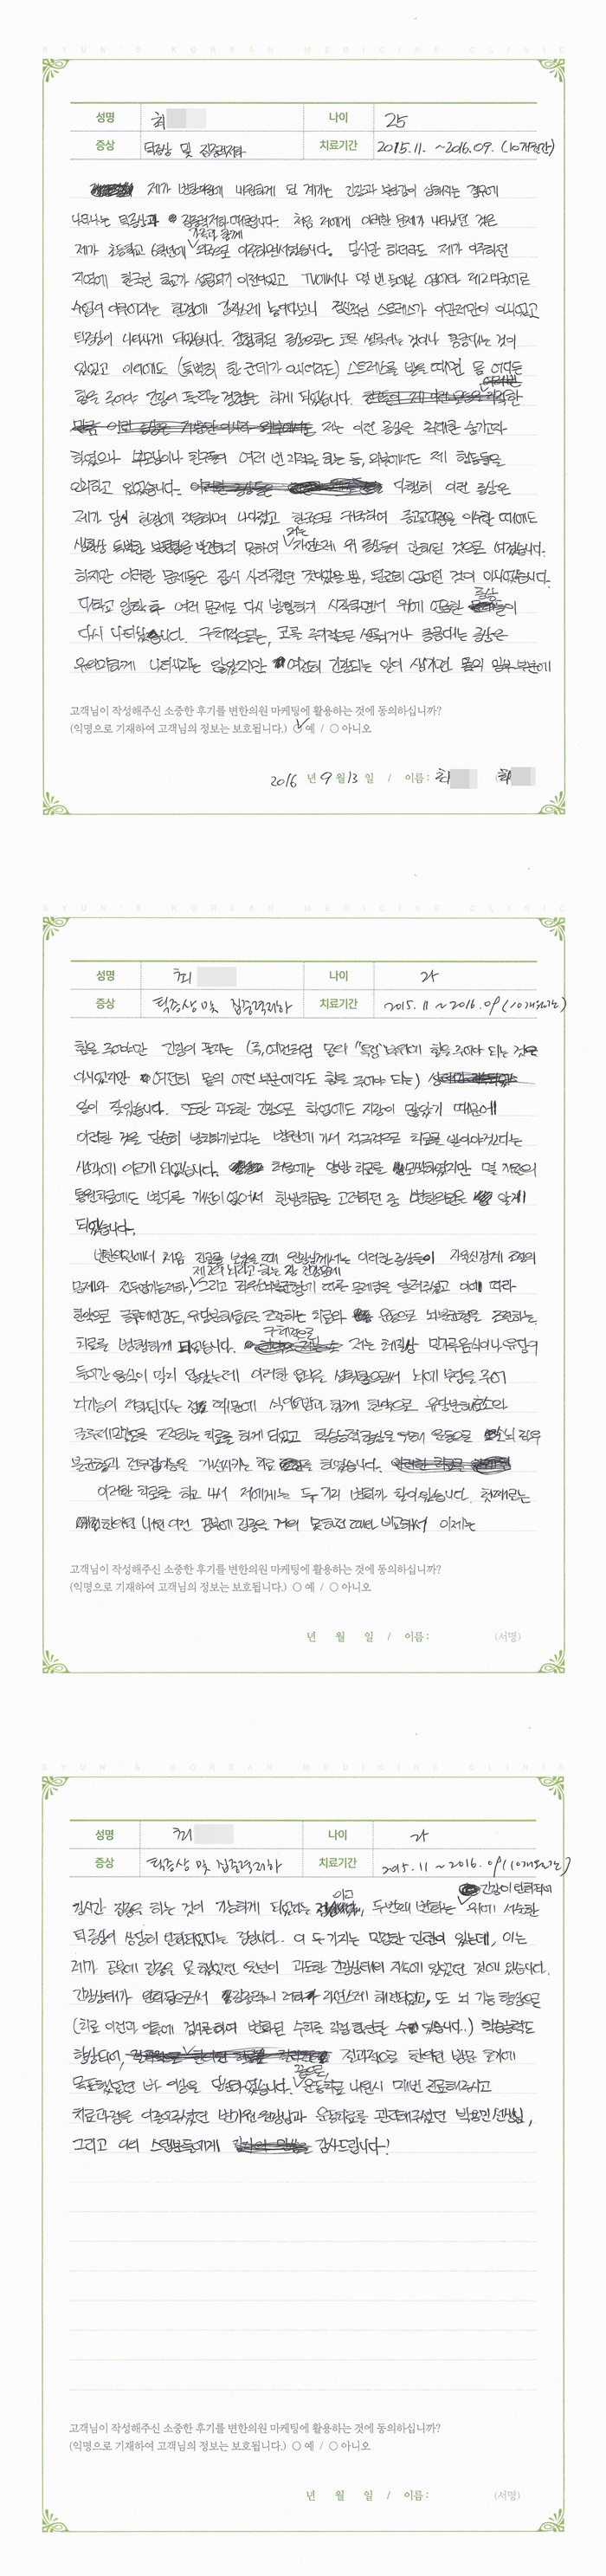 BYUN'S KOREAN MEDICINE CLINIC
성명 최 나이 25
증상 틱증상 및 집중력저하 치료기간 2015.11. ~2016.09. (10개월간)
제가 변한의원에 내원하게 된 계기는 긴장과 불안감이 심해지는 경우에
나타나는 틱증상과 집중력저하 때문입니다. 처음 저에게 이러한 문제가 나타났던 것은
가족과 함께
제가 초등학교 6학년에 으로 이주하면서였습니다. 당시만 하더라도 제가 이주하던
지역에 한국인 학교가 설립되기 이전이었고 TV에서나 몇 번 들어본 영어와 제2외국어로
수업이 이루어지는 환경에 갑작스레 놓여지다보니 정신적인 스트레스가 이만저만이 아니었고
틱증상이 나타나게 되었습니다. 코를 킁킁대는 것이
있었고 이외에도 (특별히 한 군데가 아니더라도) 스트레스를 받을 때면 몸 어디든
힘을 주어야 긴장이 풀리는 경험을 하게 되었습니다.
저는 이런 증상을 최대한 숨기려
하였으나 부모님이나 친구들이 여러 번 지적을 하는 등, 외부에서도 제 행동들을
인지하고 있었습니다. 다행히 이런 증상은
제가 당시 환경에 적응하며 나아졌고 한국으로 귀국하여 중고교과정을 이수할 때에도
생활상 특별한 불편함을 발견하지 못하여 저는 자연스레 위 증상들이 완화된 것으로 여겼습니다.
하지만 이러한 문제들은 잠시 사라졌던 것이었을 뿐, 완전히 없어진 것이 아니었습니다.
대학교 입학 후 여러 문제로 다시 발현하기 시작하면서 위에 언급한 증상들이
다시 나타났습니다. 구체적으로는, 코를 주기적으로 실룩거거나 킁킁대는 증상은
유의미하게 나타나지는 않았지만 여전히 긴장되는 일이 생기면 몸의 일부 부분에
고객님이 작성해주신 소중한 후기를 변한의원 마케팅에 활용하는 것에 동의하십니까?
(익명으로 기재하여 고객님의 정보는 보호됩니다.) ○ 예 / ○ 아니오
2016 년 9 월 13 일 / 이름 : 최 최
BYUN'S KOREAN MEDICINE CLINIC
성명 최 나이 25
증상 틱증상 및 집중력저하 치료기간 2015.11 ~ 2016.09 (10개월간)
힘을 주어야만 긴장이 풀리는 (즉, 예전처럼 몸의 "특정"부위에 힘을 주어야 되는 것은
아니었지만 여전히 몸의 어떤 부분에라도 힘을 주어야 되는)
일이 잦았습니다. 또한 과도한 긴장으로 학업에도 지장이 많았기 때문에
이러한 것을 단순히 방치하기보다는 병원에 가서 적극적으로 치료를 받아야겠다는
생각에 이르게 되었습니다. 처음에는 양방 치료를 모색하였지만 몇 차례의
통원치료에도 별다른 개선이 없어서 한방치료를 고려하던 중 변한의원을 알게
되었습니다.
변한의원에서 처음 진료를 받았을 때 원장님께서는 이러한 증상들이 자율신경계 조절의
문제와 전두엽기능저하, 그리고 좌우뇌불균형에 따른 문제임을 알려주셨고 이에 따라
한약으로 글루테민감도, 유당분해효소를 조절하는 치료와 운동으로 뇌불균형을 조절하는
구체적으로
치료를 병행하게 되었습니다. 저는 체질상 밀가루음식이나 유당이
들어간 음식이 맞지 않았는데 이러한 음식을 섭취함으로써 뇌에 부담을 주어
뇌기능이 저하된다는 점 때문에 식이요법과 함께 한약으로 유당분해효소와
글루테민감도를 조절하는 치료를 하게 되었고 학습능력향상을 위해 운동으로 뇌 좌우
불균형과 전두엽기능을 개선시키는 치료를 하였습니다.
이러한 치료를 하고 나서 저에게는 두 가지 변화가 찾아왔습니다. 첫째로는
한의원 내원 이전 공부에 집중을 거의 못하던 때와 비교해서 이제는
고객님이 작성해주신 소중한 후기를 변한의원 마케팅에 활용하는 것에 동의하십니까?
(익명으로 기재하여 고객님의 정보는 보호됩니다.) ○ 예 / ○ 아니오
년 월 일 / 이름 : (서명)
BYUN'S KOREAN MEDICINE CLINIC
성명 최 나이 25
증상 틱증상 및 집중력저하 치료기간 2015.11 ~ 2016.09 (10개월간)
긴장이 완화되어
장시간 집중을 하는 것이 가능하게 되었다는 점이고, 두번째 변화는 위에 서술한
틱증상이 상당히 완화되었다는 점입니다. 이 두 가지는 밀접한 관련이 있는데, 이는
제가 공부에 집중을 못 했었던 원인이 과도한 긴장상태의 지속에 있었던 것에 있습니다.
긴장상태가 완화됨으로써 집중력의 저하가 자연스레 해결되었고, 또 뇌 기능 향상으로
(치료 이전과 이후에 검사를 하여 변화된 수치를 직접 확인할 수 있습니다.) 학습능력도
향상되어, 결과적으로 한의원 방문 초기에
목표했었던 바 이상을 달성하였습니다. 끝으로, 운동치료 나원시 매번 진료해주시고
치료과정을 이끌어주셨던 변기원 원장님과 운동치료를 관리해주셨던 박용민 선생님,
그리고 여러 스탭분들에게 감사드립니다!
고객님이 작성해주신 소중한 후기를 변한의원 마케팅에 활용하는 것에 동의하십니까?
(익명으로 기재하여 고객님의 정보는 보호됩니다.) ○ 예 / ○ 아니오
년 월 일 / 이름 : (서명)